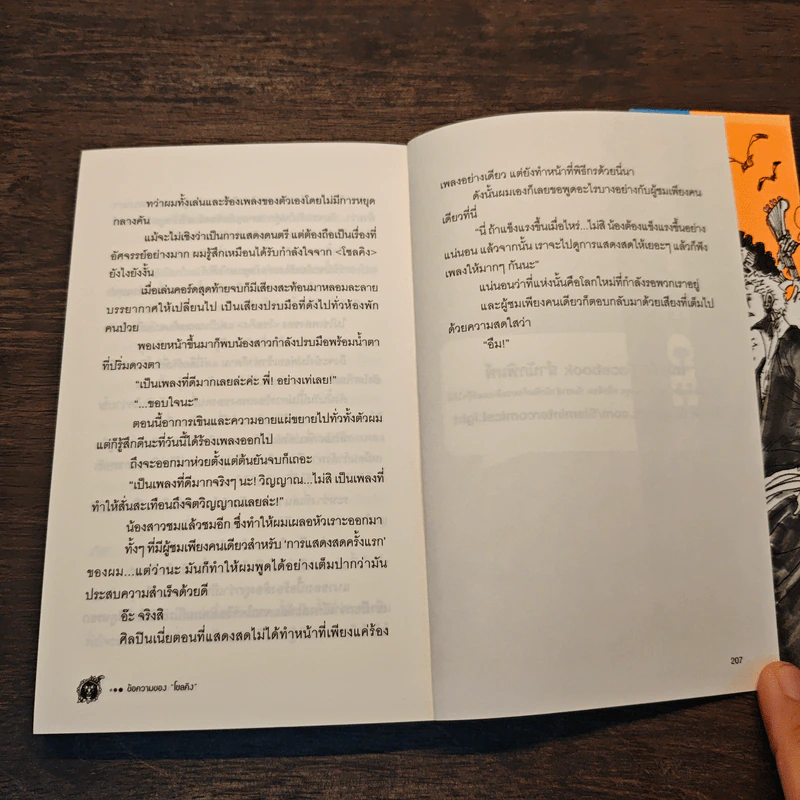 ทว่าผมทั้งเล่นและร้องเพลงของตัวเองโดยไม่มีการหยุด
กลางคัน
แม้จะไม่เชิงว่าเป็นการแสดงดนตรี แต่ต้องถือเป็นเรื่องที่
อัศจรรย์อย่างมาก ผมรู้สึกเหมือนได้รับกำลังใจจาก <โซลคิง>
ยังไงยังงั้น
เมื่อเล่นคอร์ดสุดท้ายจบก็มีเสียงสะท้อนมาหลอมละลาย
บรรยากาศให้เปลี่ยนไป เป็นเสียงปรบมือที่ดังไปทั่วห้องพัก
คนป่วย
พอเงยหน้าขึ้นมาก็พบน้องสาวกำลังปรบมือพร้อมน้ำตา
ที่ปริ่มดวงตา
“เป็นเพลงที่ดีมากเลยล่ะค่ะ พี่! อย่างเท่เลย!”
“...ขอบใจนะ”
ตอนนี้อาการเขินและความอายแผ่ขยายไปทั่วทั้งตัวผม
แต่ก็รู้สึกดีนะที่วันนี้ได้ร้องเพลงออกไป
ถึงจะออกมาห่วยตั้งแต่ต้นยันจบก็เถอะ
“เป็นเพลงที่ดีมากจริงๆ นะ! วิญญาณ...ไม่สิ เป็นเพลงที่
ทำให้สั่นสะเทือนถึงจิตวิญญาณเลยล่ะ!”
น้องสาวชมแล้วชมอีก ซึ่งทำให้ผมเผลอหัวเราะออกมา
ทั้งๆ ที่มีผู้ชมเพียงคนเดียวสำหรับ ‘การแสดงสดครั้งแรก’
ของผม...แต่ว่านะ มันก็ทำให้ผมพูดได้อย่างเต็มปากว่ามัน
ประสบความสำเร็จด้วยดี
อ๊ะ จริงสิ
ศิลปินเนี่ยตอนที่แสดงสดไม่ได้ทำหน้าที่เพียงแค่ร้อง
ข้อความของ “โซลคิง”
เพลงอย่างเดียว แต่ยังทำหน้าที่พิธีกรด้วยนี่นา
ดังนั้นผมเองก็เลยขอพูดอะไรบางอย่างกับผู้ชมเพียงคน
เดียวที่นี่
“นี่ ถ้าแข็งแรงขึ้นเมื่อไหร่...ไม่สิ น้องต้องแข็งแรงขึ้นอย่าง
แน่นอน แล้วจากนั้น เราจะไปดูการแสดงสดให้เยอะๆ แล้วก็ฟัง
เพลงให้มากๆ กันนะ”
แน่นอนว่าที่แห่งนั้นคือโลกใหม่ที่กำลังรอพวกเราอยู่
และผู้ชมเพียงคนเดียวก็ตอบกลับมาด้วยเสียงที่เต็มไป
ด้วยความสดใสว่า
“อืม!”
207